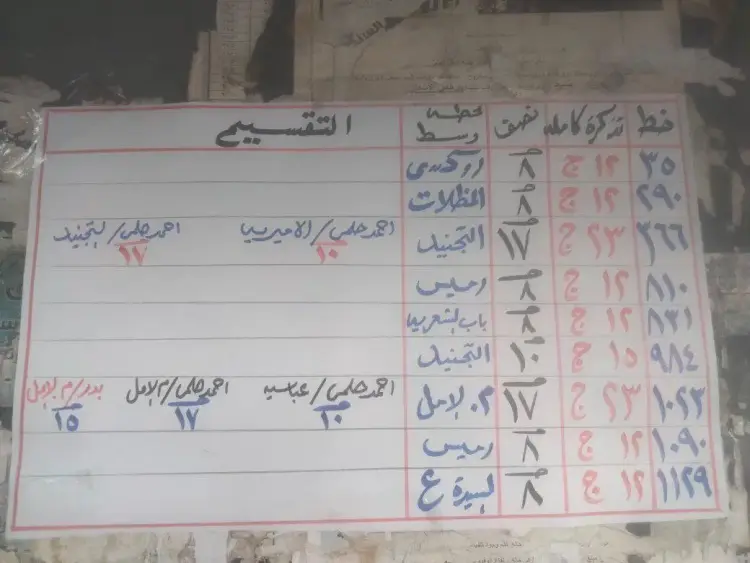 خط تذكرة كاملة نصف محطة وسط التقسيم
٣٥ ١٢ ج ٨ روكسى
٢٩٠ ١٢ ج ٨ المظلات
٣٦٦ ٢٣ ج ١٧ التجنيد احمد حلمى/الاميرية ١٠ احمد حلمى/التجنيد ١٧
٨١٠ ١٢ ج ٨ رمسيس
٨٣١ ١٢ ج ٨ باب الشعرية
٩٨٤ ١٥ ج ١٠ التجنيد
١٠٢٣ ٢٣ ج ١٧ م. الامل احمد حلمى/عباسية ١٠ احمد حلمى/م الامل ١٧ بدر/م الامل ١٥
١٠٩٠ ١٢ ج ٨ رمسيس
١١٢٩ ١٢ ج ٨ السيدة ع